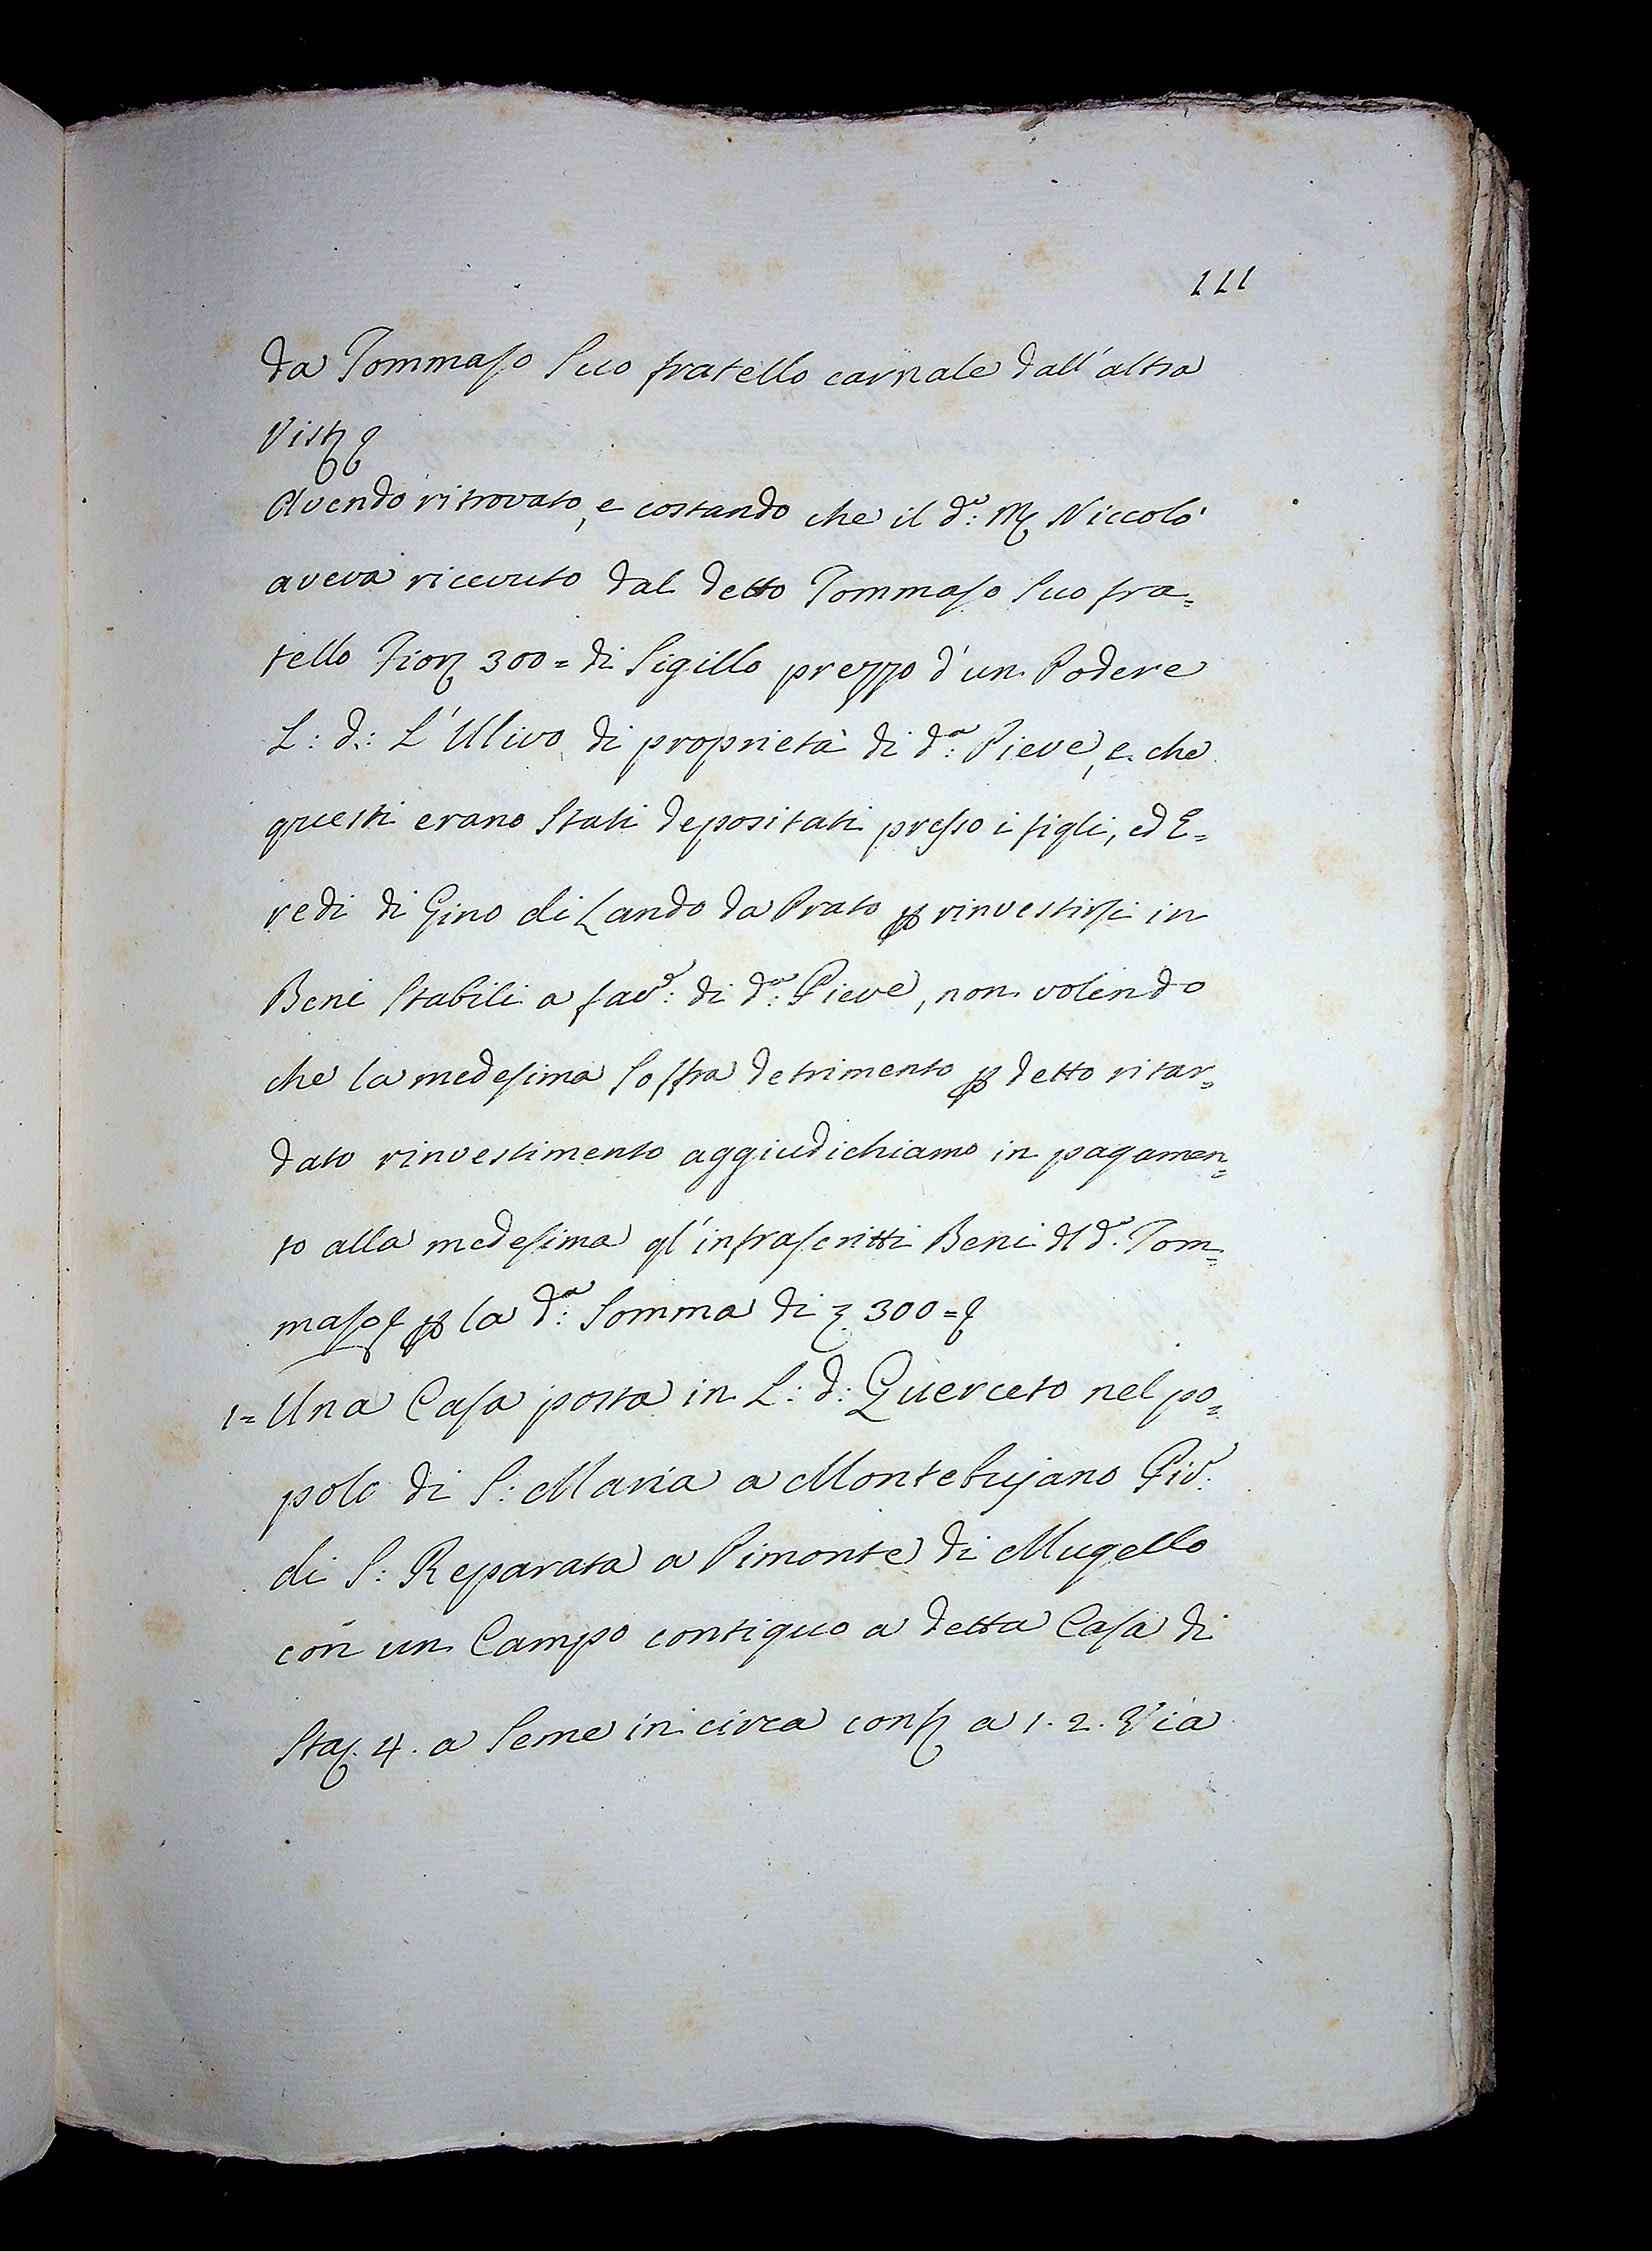 111
da Tommaso Suo fratello carnale dall'altra
Vist
Avendo ritrovato, e costando che il d.o: M Niccolò
aveva ricevuto dal detto Tommaso Suo fra=
tello Fior 300= di Sigillo prezzo d'un Podere
L: d.: L'Ulivo di proprietà di d.a: Pieve, e che
questi erano Stati depositati presso i figli, ed E=
redi di Gino di Lando da Prato p rinvestirsi in
Beni Stabili a fav.e: di d.a: Pieve, non volendo
che la medesima Soffra detrimento p detto ritar=
dato rinvestimento aggiudichiamo in pagamen=
to alla medesima gl'infrascritti Beni dl d.o Tom=
maso p la d.a: Somma di 300=
1= Una Casa posta in L: d: Querceto nel po=
polo di S: Maria a Montebujano Piv.e
di S: Reparata a Pimonte di Mugello
con un Campo contiguo a detta Casa di
Sta. 4. a Seme in circa conf a 1. 2. Via